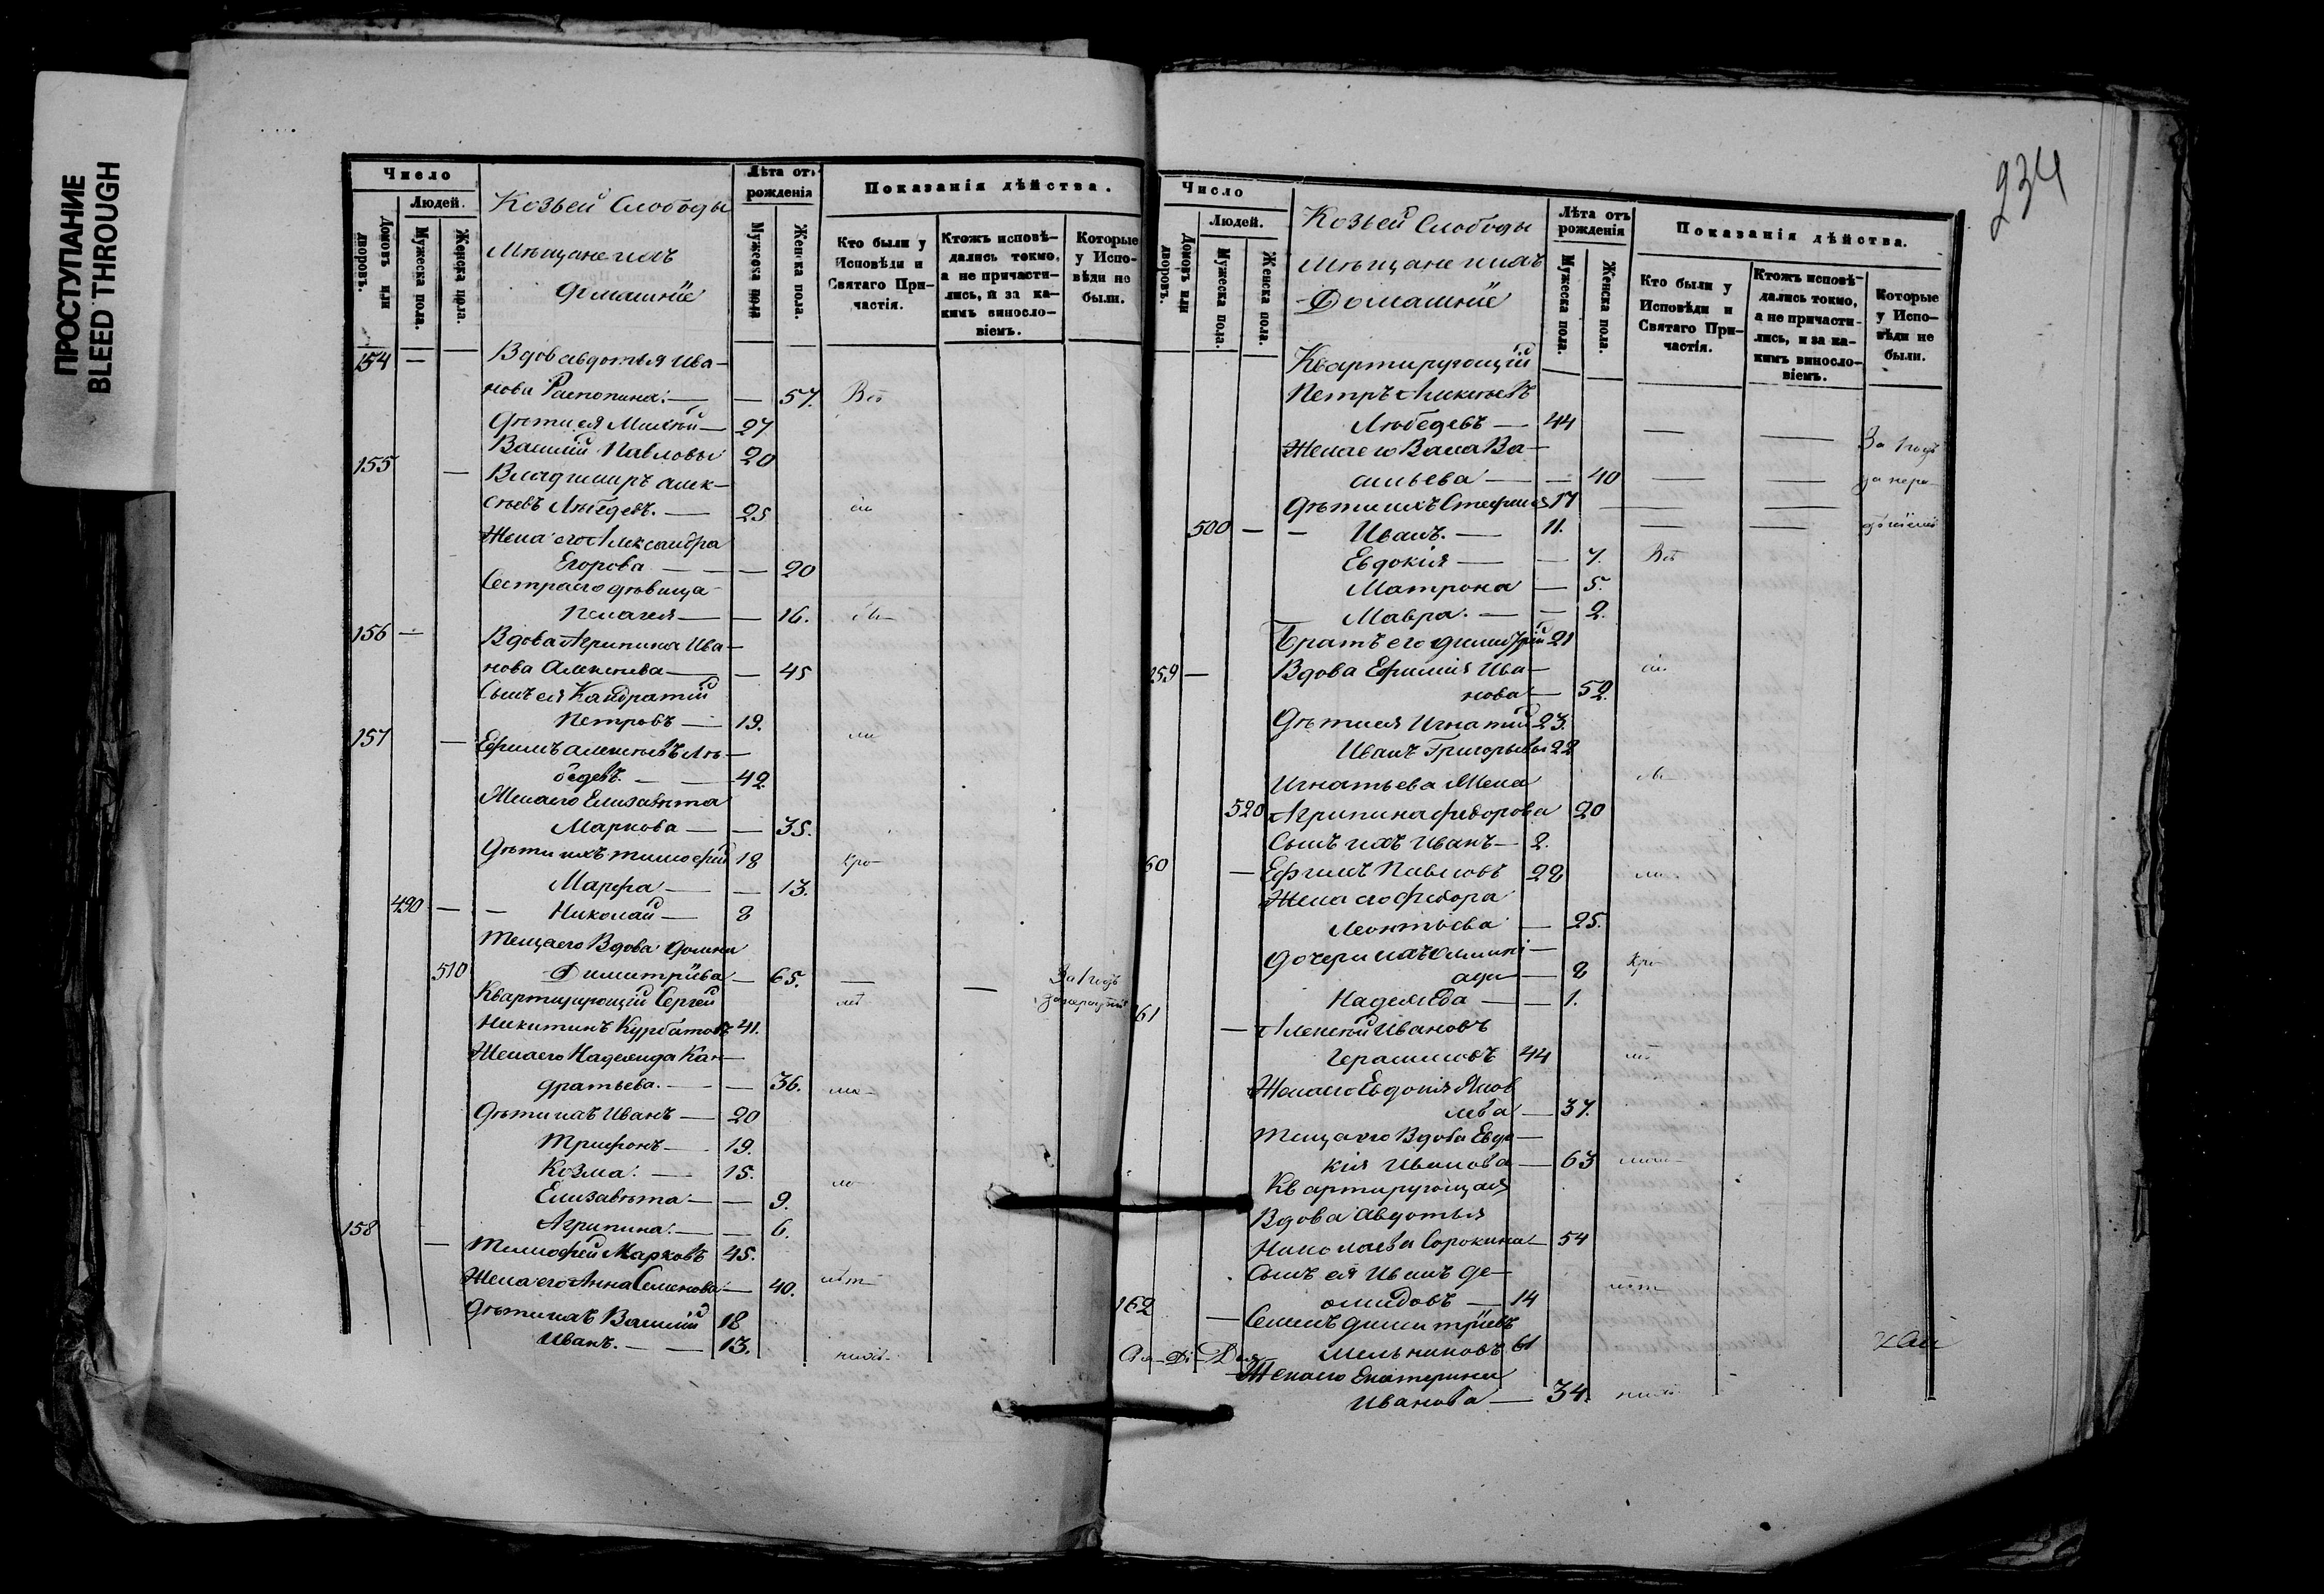 ПРОСТУПАНИЕ
BLEED THROUGH
Число
Людей.
Домовъ или дворовъ.
Мужеска пола.
Женска пола.
Козьей Слободы
Мѣщане и ихъ
домашніе
Лѣта отъ рожденія
Мужеска пола
Женска пола.
Показанія дѣйства.
Кто были у Исповѣди и Святаго Причастія.
Ктожъ исповѣдались токмо, а не причастились, и за какимъ винословіемъ.
Которые у Исповѣди не были.
154 — Вдова Авдотья Ива-
нова Распопина. — — 57. Всѣ
Дѣти ея Михѣй — 27
Василій Павловы 20
155 — Владимиръ Алек-
сѣевъ Лебедевъ. — 25
Жена его Александра
Егорова — — 20
Сестра его дѣвица
Пелагея — — 16.
156 — Вдова Агрипина Ива-
нова Алексѣева — — 45
Сынъ ея Кандратій
Петровъ — 19.
157 — Ефимъ Алексѣевъ Ле-
бедевъ. — 42.
Жена его Елизавѣта
Маркова — — 35.
Дѣти ихъ Тимофей 18
Марфа — — 13.
490 — — Николай — 8
Теща его Вдова Домна
510 Димитріева — 65. — — За 1 годъ
Квартирующій Сергей за нерадѣніе
Никитинъ Курбатовъ 41.
Жена его Надежда Кан-
дратьева. — — 36.
Дѣти ихъ Иванъ — 20
Трифонъ — 19.
Козма. — 15.
Елизавѣта — — 9.
Агрипина. — — 6.
158 — Тимофей Марковъ 45.
Жена его Анна Семенова — 40.
Дѣти ихъ Василій 18
Иванъ. — — 13.
234
Число
Людей.
Домовъ или дворовъ.
Мужеска пола.
Женска пола.
Козьей Слободы
Мѣщане и ихъ
Домашніе
Лѣта отъ рожденія
Мужеска пола.
Женска пола.
Показанія дѣйства.
Кто были у Исповѣди и Святаго Причастія.
Ктожъ исповѣдались токмо, а не причастились, и за какимъ винословіемъ.
Которые у Исповѣди не были.
Квартирующій
Петръ Алексѣевъ
Лебедевъ — 44 — — За 1 годъ
Жена его Васа Ва-
сильева — — 40 — — за нера-
Дѣти ихъ Стефанъ 17 — —
500 — — Иванъ. — 11. — — дѣніемъ
Евдокія — — 7. Всѣ
Матрона — 5.
Мавра. — — 2.
Братъ его Димитрій 21
259 — Вдова Ефимія Ива-
нова — 52.
Дѣти ея Игнатій 23.
Иванъ Григорьевы 22
Игнатьева Жена
520 Агрипина Федорова 20
Сынъ ихъ Иванъ — 2.
60 — Ефимъ Павловъ 28
Жена его Федора
Леонтьева — 25.
Дочери ихъ
— 8
Надежда — — 1.
61 — Алексѣй Ивановъ
Герасимовъ 44
Жена его Евдокія Яков
лева — 37.
Теща его Вдова Евдо-
кія Иванова — 63
Квартирующая
Вдова Авдотья
Николаева Сорокина — 54
Сынъ ея Иванъ Де-
мидовъ — 14
162 — Семенъ Димитріевъ
Мельниковъ 61
Жена его Екатерина
Иванова — 34.